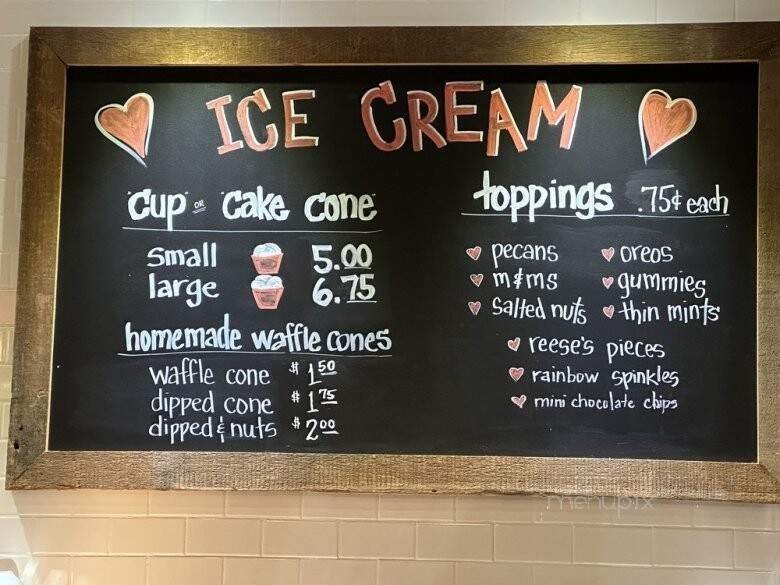 ICE CREAM
"Cup" OR "Cake Cone"
small 5.00
large 6.75
homemade waffle cones
waffle cone $1.50
dipped cone $1.75
dipped & nuts $2.00
toppings .75¢ each
pecans
m&ms
salted nuts
oreos
gummies
thin mints
reese's pieces
rainbow spinkles
mini chocolate chips
menupix